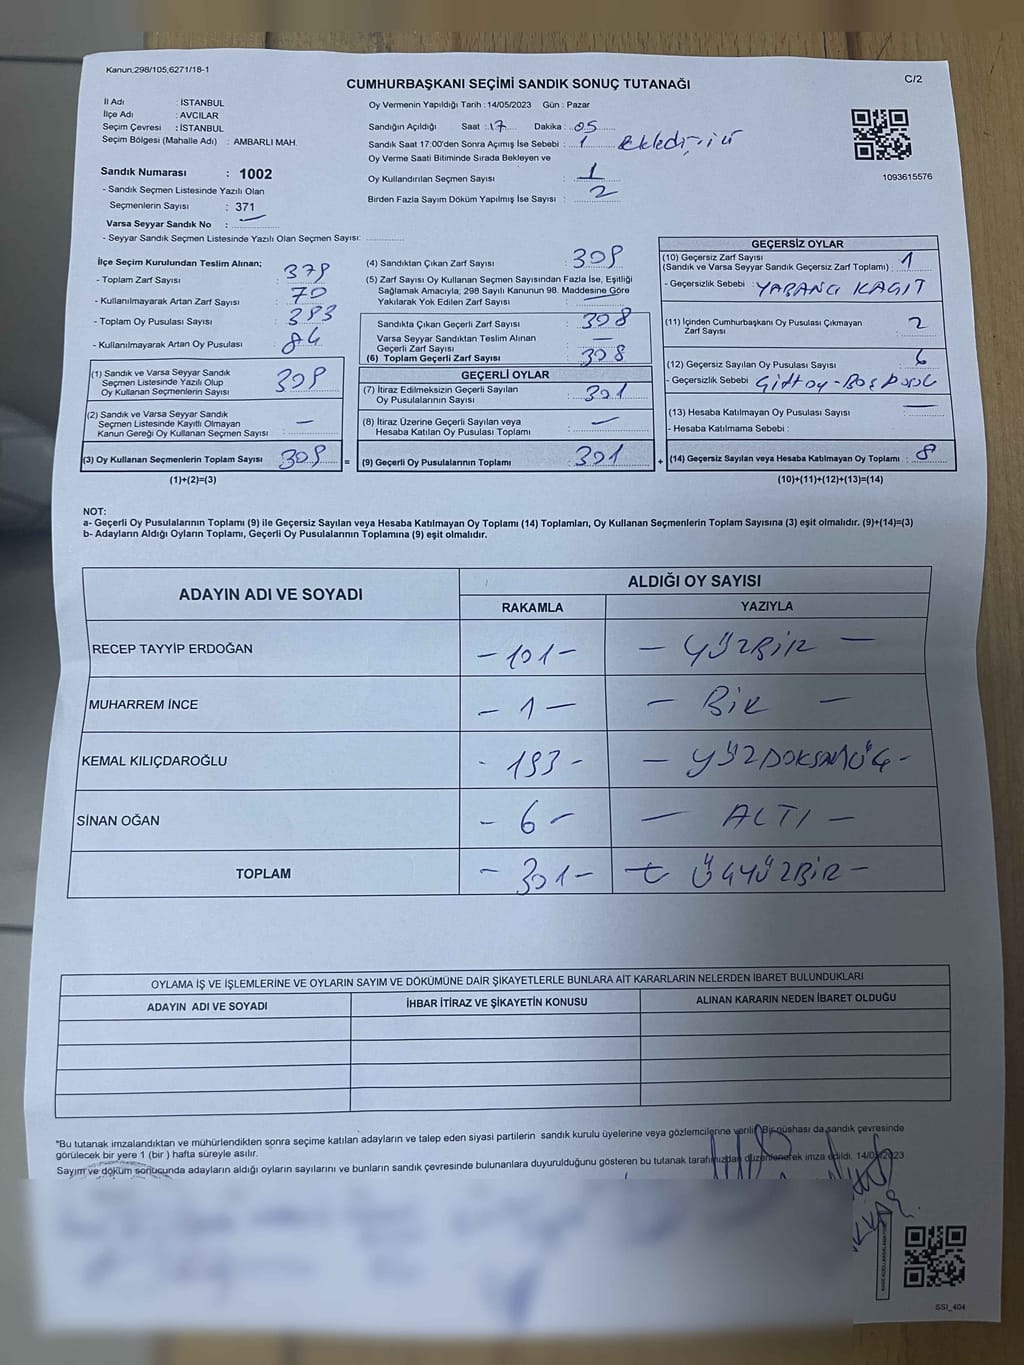 Kanun;298/105,6271/18-1
CUMHURBAŞKANI SEÇİMİ SANDIK SONUÇ TUTANAĞI
C/2
İl Adı : İSTANBUL
İlçe Adı : AVCILAR
Seçim Çevresi : İSTANBUL
Seçim Bölgesi (Mahalle Adı) : AMBARLI MAH.
Oy Vermenin Yapıldığı Tarih : 14/05/2023 Gün : Pazar
Sandığın Açıldığı Saat : 17 Dakika : 05
Sandık Saat 17:00'den Sonra Açımış İse Sebebi : 1
Oy Verme Saati Bitiminde Sırada Bekleyen ve
Oy Kullandırılan Seçmen Sayısı : 1
Birden Fazla Sayım Döküm Yapılmış İse Sayısı : 2
1093615576
Sandık Numarası : 1002
- Sandık Seçmen Listesinde Yazılı Olan
Seçmenlerin Sayısı : 371
Varsa Seyyar Sandık No : —
- Seyyar Sandık Seçmen Listesinde Yazılı Olan Seçmen Sayısı:
İlçe Seçim Kurulundan Teslim Alınan;
- Toplam Zarf Sayısı : 379
- Kullanılmayarak Artan Zarf Sayısı : 70
- Toplam Oy Pusulası Sayısı : 393
- Kullanılmayarak Artan Oy Pusulası : 84
(1) Sandık ve Varsa Seyyar Sandık
Seçmen Listesinde Yazılı Olup
Oy Kullanan Seçmen Sayısı : 309
(2) Sandık ve Varsa Seyyar Sandık
Seçmen Listesinde Kayıtlı Olmayan
Kanun Gereği Oy Kullanan Seçmen Sayısı : —
(3) Oy Kullanan Seçmenlerin Toplam Sayısı : 309 =
(1)+(2)=(3)
(4) Sandıktan Çıkan Zarf Sayısı : 309
(5) Zarf Sayısı Oy Kullanan Seçmen Sayısından Fazla İse, Eşitliği
Sağlamak Amacıyla; 298 Sayılı Kanunun 98. Maddesine Göre
Yakılarak Yok Edilen Zarf Sayısı : —
Sandıkta Çıkan Geçerli Zarf Sayısı : 308
Varsa Seyyar Sandıktan Teslim Alınan
Geçerli Zarf Sayısı : —
(6) Toplam Geçerli Zarf Sayısı : 308
GEÇERLİ OYLAR
(7) İtiraz Edilmeksizin Geçerli Sayılan
Oy Pusulalarının Sayısı : 301
(8) İtiraz Üzerine Geçerli Sayılan veya
Hesaba Katılan Oy Pusulası Toplamı : —
(9) Geçerli Oy Pusulalarının Toplamı : 301 +
GEÇERSİZ OYLAR
(10) Geçersiz Zarf Sayısı
(Sandık ve Varsa Seyyar Sandık Geçersiz Zarf Toplamı) : 1
- Geçersizlik Sebebi : YABANCI KAGIT
(11) İçinden Cumhurbaşkanı Oy Pusulası Çıkmayan
Zarf Sayısı : 2
(12) Geçersiz Sayılan Oy Pusulası Sayısı : 6
- Geçersizlik Sebebi : Çift oy - Boş
(13) Hesaba Katılmayan Oy Pusulası Sayısı : —
- Hesaba Katılmama Sebebi :
(14) Geçersiz Sayılan veya Hesaba Katılmayan Oy Toplamı : 8
(10)+(11)+(12)+(13)=(14)
NOT:
a- Geçerli Oy Pusulalarının Toplamı (9) ile Geçersiz Sayılan veya Hesaba Katılmayan Oy Toplamı (14) Toplamları, Oy Kullanan Seçmenlerin Toplam Sayısına (3) eşit olmalıdır. (9)+(14)=(3)
b- Adayların Aldığı Oyların Toplamı, Geçerli Oy Pusulalarının Toplamına (9) eşit olmalıdır.
ADAYIN ADI VE SOYADI
ALDIĞI OY SAYISI
RAKAMLA YAZIYLA
RECEP TAYYİP ERDOĞAN - 101 - - YÜZBİR -
MUHARREM İNCE - 1 - - BİR -
KEMAL KILIÇDAROĞLU - 193 - - YÜZDOKSANÜÇ -
SİNAN OĞAN - 6 - - ALTI -
TOPLAM - 301 - ÜÇYÜZBİR -
OYLAMA İŞ VE İŞLEMLERİNE VE OYLARIN SAYIM VE DÖKÜMÜNE DAİR ŞİKAYETLERLE BUNLARA AİT KARARLARIN NELERDEN İBARET BULUNDUKLARI
ADAYIN ADI VE SOYADI İHBAR İTİRAZ VE ŞİKAYETİN KONUSU ALINAN KARARIN NEDEN İBARET OLDUĞU
*Bu tutanak imzalandıktan ve mühürlendikten sonra seçime katılan adayların ve talep eden siyasi partilerin sandık kurulu üyelerine veya gözlemcilerine verilir. Bir nüshası da sandık çevresinde
görülecek bir yere 1 (bir ) hafta süreyle asılır.
Sayım ve döküm sonucunda adayların aldığı oyların sayılarını ve bunların sandık çevresinde bulunanlara duyurulduğunu gösteren bu tutanak tarafımızdan düzenlenerek imza edildi. 14/05/2023
SSI_404